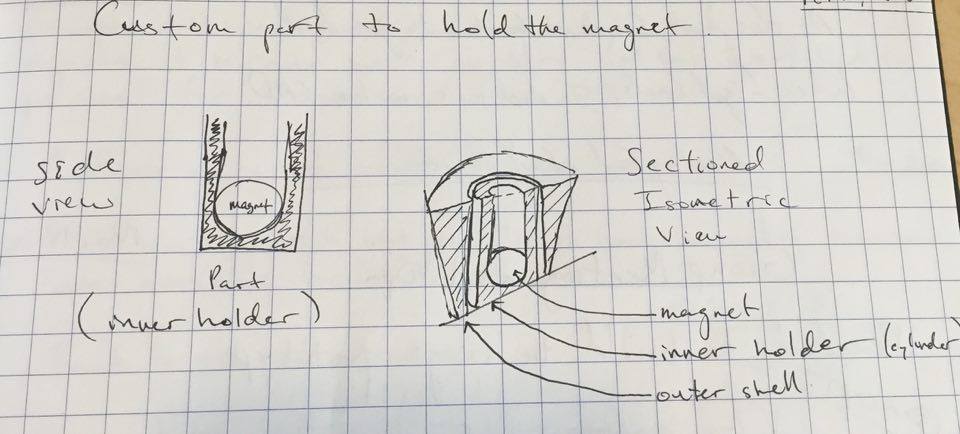 Custom part to hold the magnet.
side
view
magnet
Part
(inner holder)
Sectioned
Isometric
View
magnet
inner holder (cylinder)
outer shell